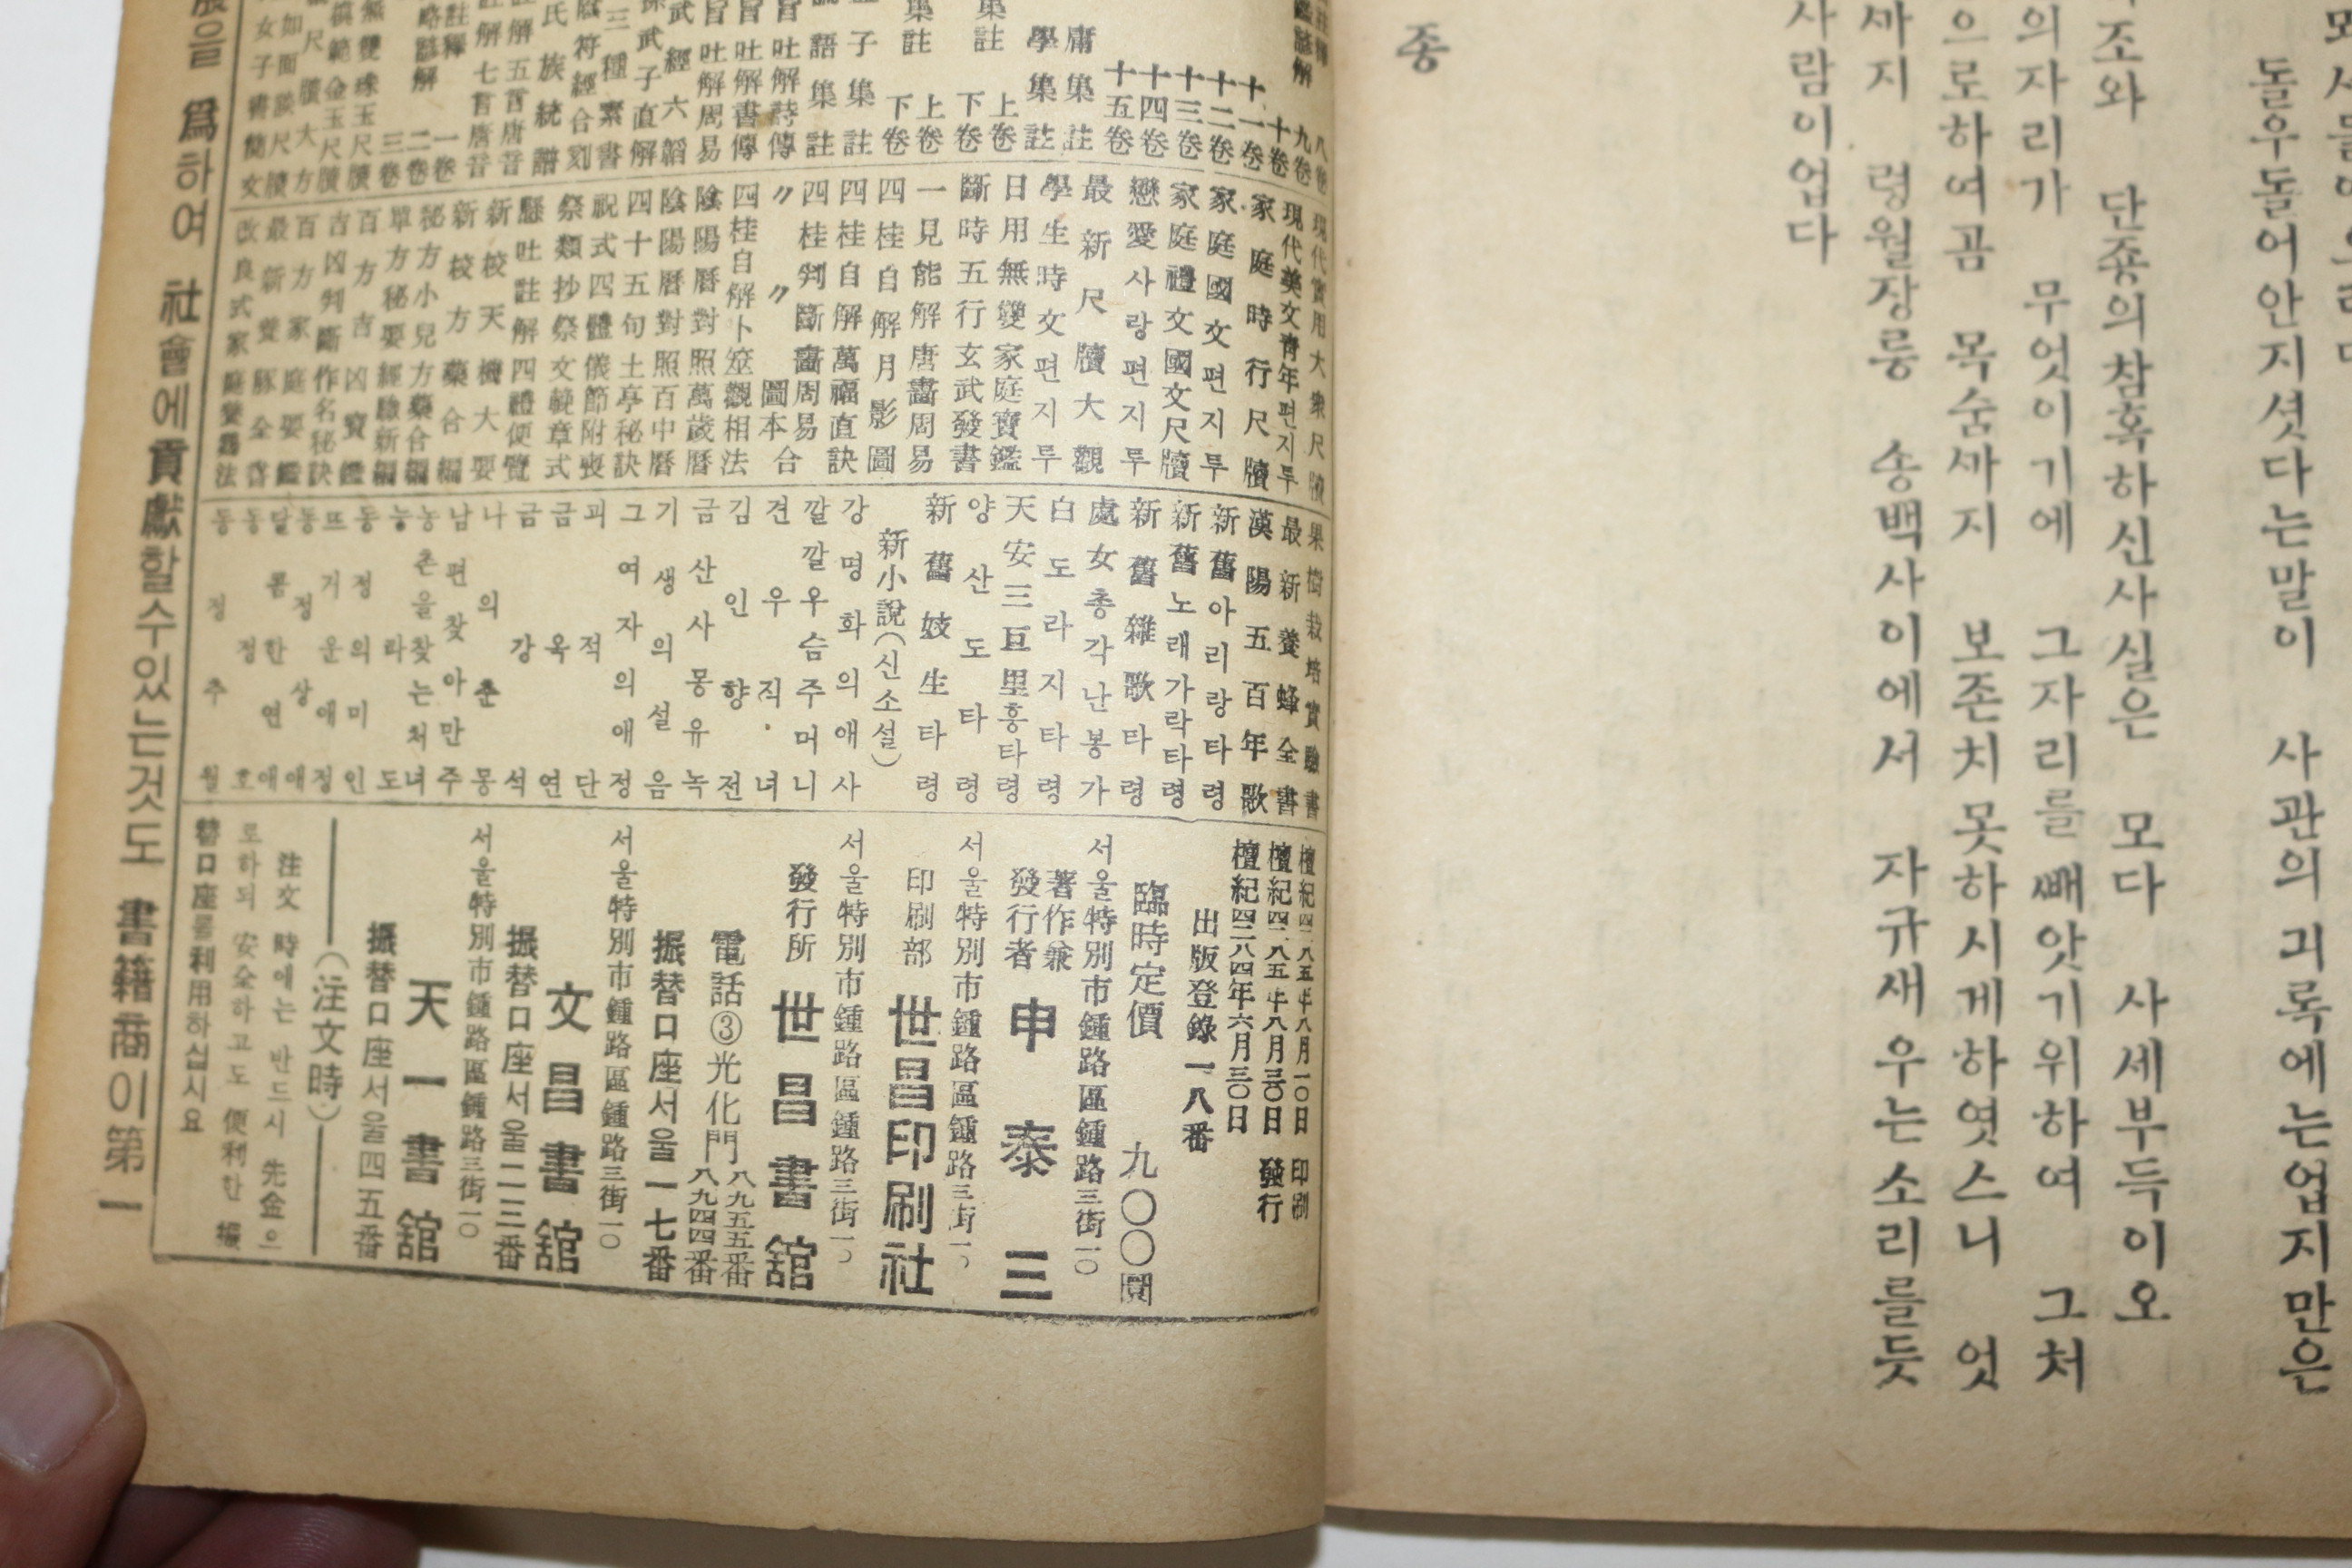 돌우돌어안지셧다는말이 사관의긔록에는업지만은
조와 단종의참혹하신사실은 모다 사세부득이오
의자리가 무엇이기에 그자리를빼앗기위하여 그처
으로하여곰 목숨까지 보존치못하시게하엿스니 엇
까지 령월장릉 송백사이에서 자규새우는소리를듯
사람이업다
종
八卷
九卷
十卷
十一卷
十二卷
十三卷
十四卷
十五卷
庸集註
學集註
集註 上卷
下卷
集註 上卷
下卷
子集註
語集註
旨吐解詩傳
旨吐解書傳
旨吐解周易
武經六韜
孫武子直解
三種素書
陰符經合刻
氏族統譜
註解五言唐音
註解七言唐音
現代實用大衆尺牘
現代美文靑年편지투
家庭時行尺牘
家庭國文편지투
家庭禮文國文尺牘
戀愛사랑편지투
最新尺牘大觀
學生時文편지투
日用無雙家庭寶鑑
斷時五行玄武發書
一見能解唐畵周易
四桂自解月影圖
四桂自解萬福直訣
四桂判斷畵周易
〃 〃 圖本合
四桂自解卜筮觀相法
陰陽曆對照萬歲曆
陰陽曆對照百中曆
四十五句土亭秘訣
祝式四體儀節附喪
祭類抄祭文範章式
懸吐註解四禮便覽
新校天機大要
新校方藥合編
秘方小兒方藥合編
單方秘要經驗新編
百方吉凶寶鑑
吉凶判斷作名秘訣
百方家庭要鑑
最新養豚全書
改良式家庭養鷄法
果樹栽培實驗書
最新養蜂全書
漢陽五百年歌
新舊아리랑타령
新舊노래가락타령
新舊雜歌타령
處女총각난봉가
白도라지타령
天安三巨里흥타령
양산도타령
新舊妓生타령
新小說(신소설)
강명화의애사
깔깔우슴주머니
견우직녀
김인향전
금산사몽유녹
기생의설음
그여자의애정
괴적단
금옥연
금강석
나의춘몽
남편찾아만주
농촌을찾는처녀
능라도
동정의미인
뜨기운애정
동정상애
달콤한연애
동정호
동정추월
檀紀四二八五年八月一〇日 印刷
檀紀四二八五年八月三〇日 發行
檀紀四二八四年六月三〇日
出版登錄一八番
臨時定價 九〇〇圓
서울特別市鍾路區鍾路三街一〇
著作兼
發行者 申泰三
서울特別市鍾路區鍾路三街一〇
印刷部 世昌印刷社
서울特別市鍾路區鍾路三街一〇
發行所 世昌書舘
電話③光化門 八九五五番
八九四四番
振替口座서울一七番
서울特別市鍾路區鍾路三街一〇
文昌書舘
振替口座서울二二三番
서울特別市鍾路區鍾路三街一〇
天一書舘
振替口座서울四五番
(注文時)
注文 時에는 반드시 先金으
로하되 安全하고도 便利한 振
替口座를利用하십시요
을 爲하여 社會에貢獻할수있는것도 書籍商이第一